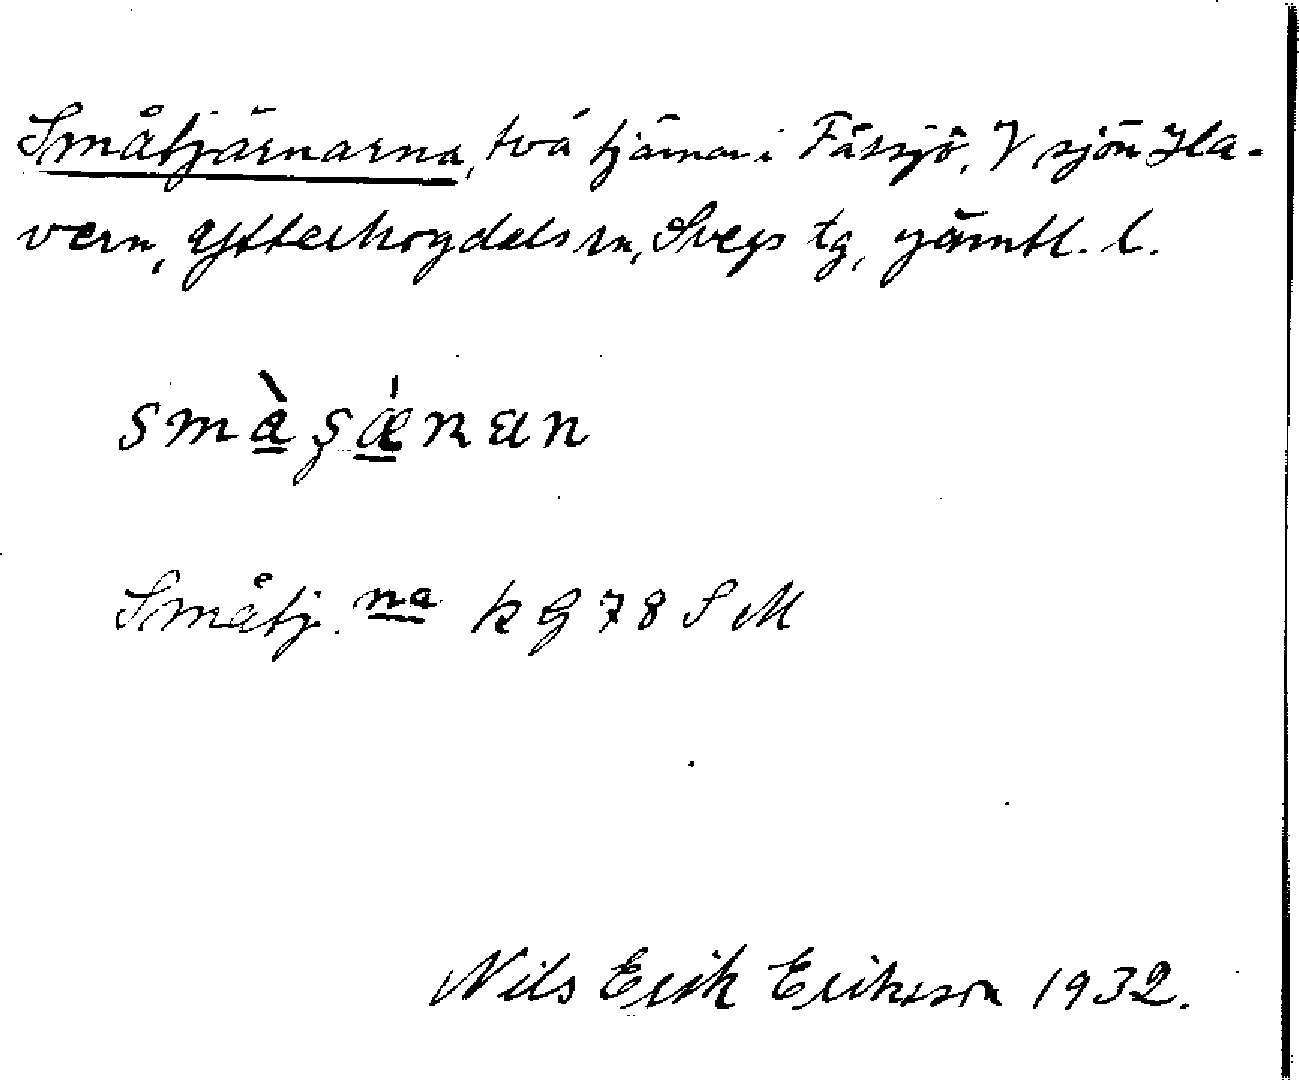 Småtjärnarna, två tjärnar i Fåssjö, V sjön Ha-
vern, Ytterhogdals sn, Svegs tg, Jämtl. l.
Småtj. na k G 78 S M
Nils Erik Eriksson 1932.